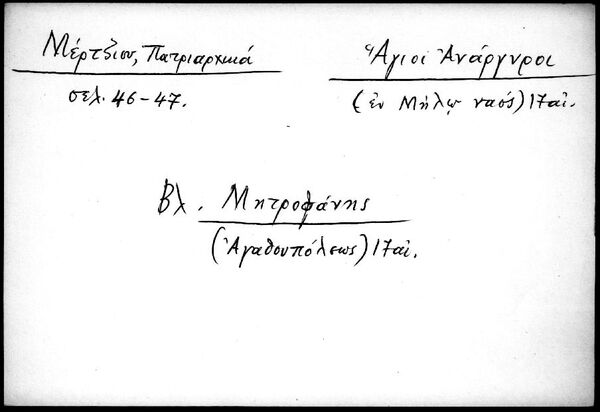 Μέρτζιου, Πατριαρχικά
σελ. 46-47.
Ἅγιοι Ἀνάργυροι
(ἐν Μήλῳ ναός) 17αἰ.
Βλ. Μητροφάνης
(Ἀγαθουπόλεως) 17αἰ.